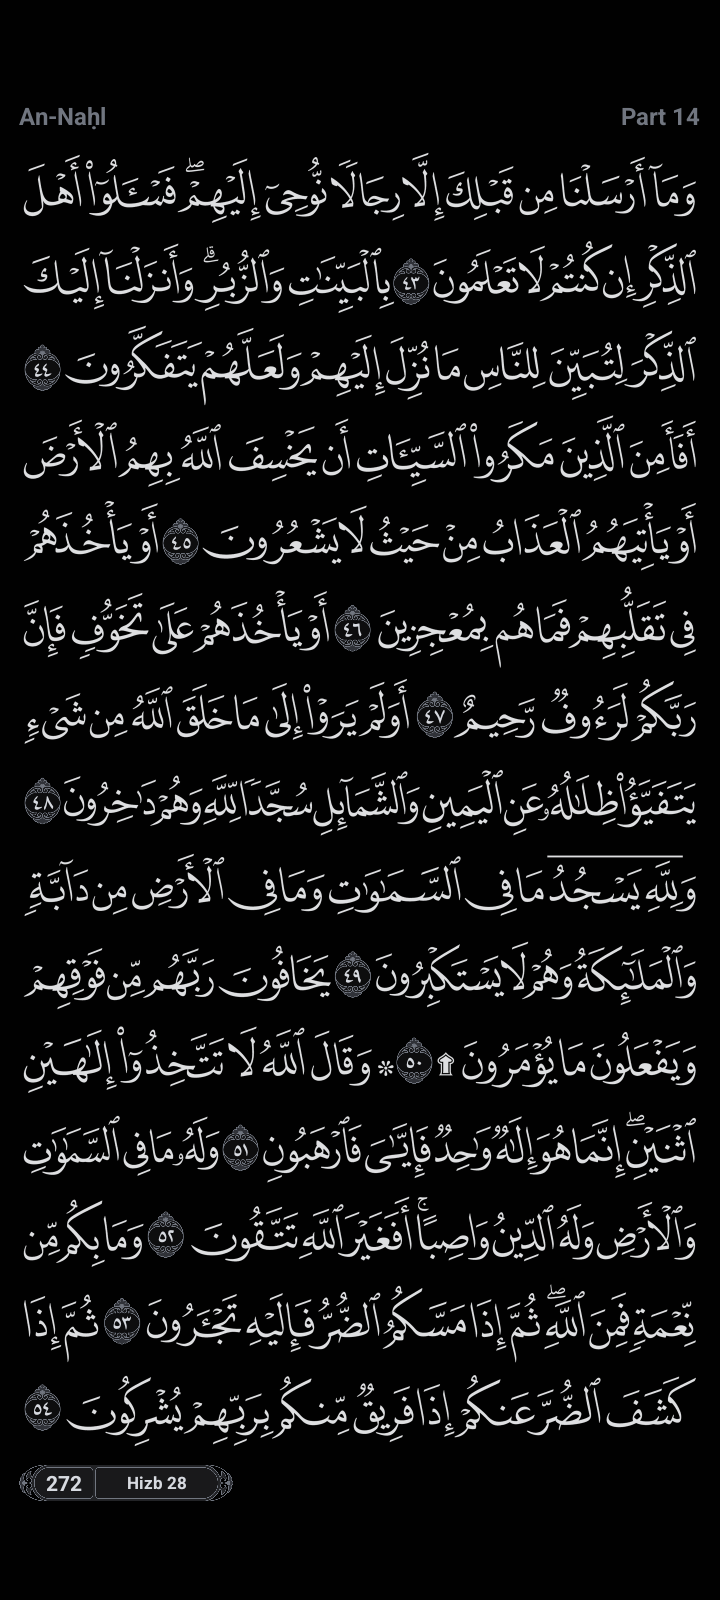 An-Naḥl
Part 14
وَمَآ أَرْسَلْنَا مِن قَبْلِكَ إِلَّا رِجَالًا نُّوحِىٓ إِلَيْهِمْ ۖ فَسْـَٔلُوٓا۟ أَهْلَ
ٱلذِّكْرِ إِن كُنتُمْ لَا تَعْلَمُونَ ٤٣ بِٱلْبَيِّنَـٰتِ وَٱلزُّبُرِ ۗ وَأَنزَلْنَآ إِلَيْكَ
ٱلذِّكْرَ لِتُبَيِّنَ لِلنَّاسِ مَا نُزِّلَ إِلَيْهِمْ وَلَعَلَّهُمْ يَتَفَكَّرُونَ ٤٤
أَفَأَمِنَ ٱلَّذِينَ مَكَرُوا۟ ٱلسَّيِّـَٔاتِ أَن يَخْسِفَ ٱللَّهُ بِهِمُ ٱلْأَرْضَ
أَوْ يَأْتِيَهُمُ ٱلْعَذَابُ مِنْ حَيْثُ لَا يَشْعُرُونَ ٤٥ أَوْ يَأْخُذَهُمْ
فِى تَقَلُّبِهِمْ فَمَا هُم بِمُعْجِزِينَ ٤٦ أَوْ يَأْخُذَهُمْ عَلَىٰ تَخَوُّفٍ فَإِنَّ
رَبَّكُمْ لَرَءُوفٌ رَّحِيمٌ ٤٧ أَوَلَمْ يَرَوْا۟ إِلَىٰ مَا خَلَقَ ٱللَّهُ مِن شَىْءٍ
يَتَفَيَّؤُا۟ ظِلَـٰلُهُۥ عَنِ ٱلْيَمِينِ وَٱلشَّمَآئِلِ سُجَّدًا لِّلَّهِ وَهُمْ دَٰخِرُونَ ٤٨
وَلِلَّهِ يَسْجُدُ مَا فِى ٱلسَّمَـٰوَٰتِ وَمَا فِى ٱلْأَرْضِ مِن دَآبَّةٍ
وَٱلْمَلَـٰٓئِكَةُ وَهُمْ لَا يَسْتَكْبِرُونَ ٤٩ يَخَافُونَ رَبَّهُم مِّن فَوْقِهِمْ
وَيَفْعَلُونَ مَا يُؤْمَرُونَ ۩ ٥٠ * وَقَالَ ٱللَّهُ لَا تَتَّخِذُوٓا۟ إِلَـٰهَيْنِ
ٱثْنَيْنِ ۖ إِنَّمَا هُوَ إِلَـٰهٌ وَٰحِدٌ فَإِيَّـٰىَ فَٱرْهَبُونِ ٥١ وَلَهُۥ مَا فِى ٱلسَّمَـٰوَٰتِ
وَٱلْأَرْضِ وَلَهُ ٱلدِّينُ وَاصِبًا ۚ أَفَغَيْرَ ٱللَّهِ تَتَّقُونَ ٥٢ وَمَا بِكُم مِّن
نِّعْمَةٍ فَمِنَ ٱللَّهِ ۖ ثُمَّ إِذَا مَسَّكُمُ ٱلضُّرُّ فَإِلَيْهِ تَجْـَٔرُونَ ٥٣ ثُمَّ إِذَا
كَشَفَ ٱلضُّرَّ عَنكُمْ إِذَا فَرِيقٌ مِّنكُم بِرَبِّهِمْ يُشْرِكُونَ ٥٤
272
Hizb 28